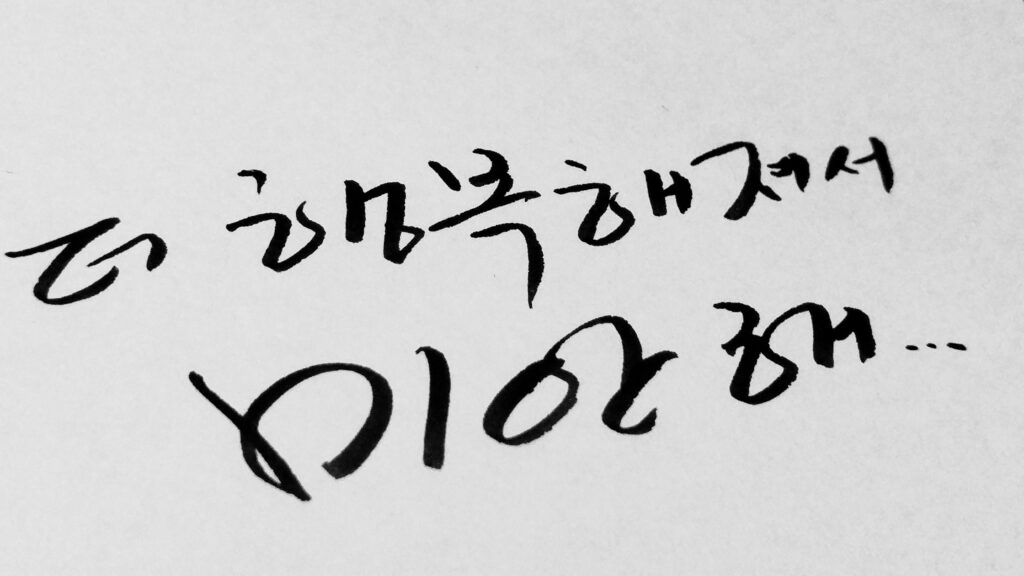 더 행복해져서
미안해...